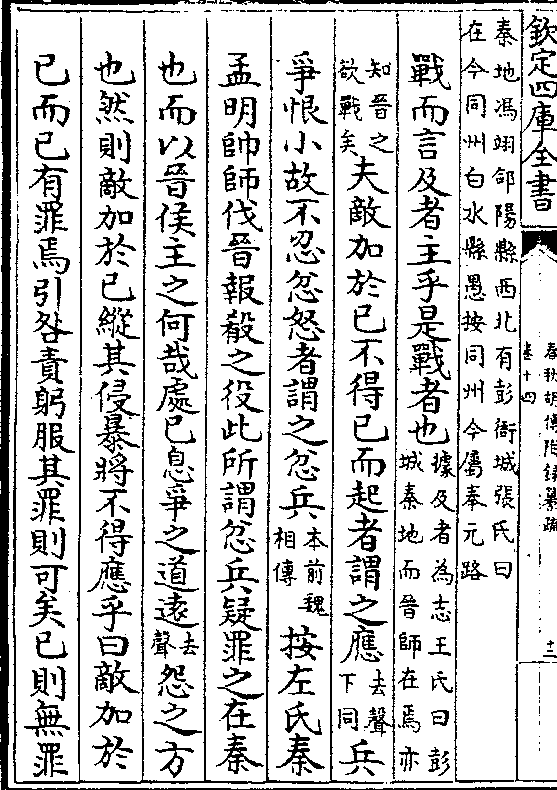 欽定四庫全書
春秋胡傳附錄纂疏
卷十四
十二
秦地馮翊郃陽縣西北有彭衙城張氏曰
在今同州白水縣愚按同州今屬奉元路
戰而言及者主乎是戰者也據及者為志王氏曰彭
城秦地而晉師在焉亦
知晉之
欲戰矣夫敵加於已不得已而起者謂之應去聲
下同兵
爭恨小故不忍忿怒者謂之忿兵本前魏
相傳按左氏秦
孟明帥師伐晉報殽之役此所謂忿兵疑罪之在秦
也而以晉侯主之何哉處已息爭之道遠去
聲怨之方
也然則敵加於已縱其侵暴將不得應乎曰敵加於
已而已有罪焉引咎責躬服其罪則可矣已則無罪